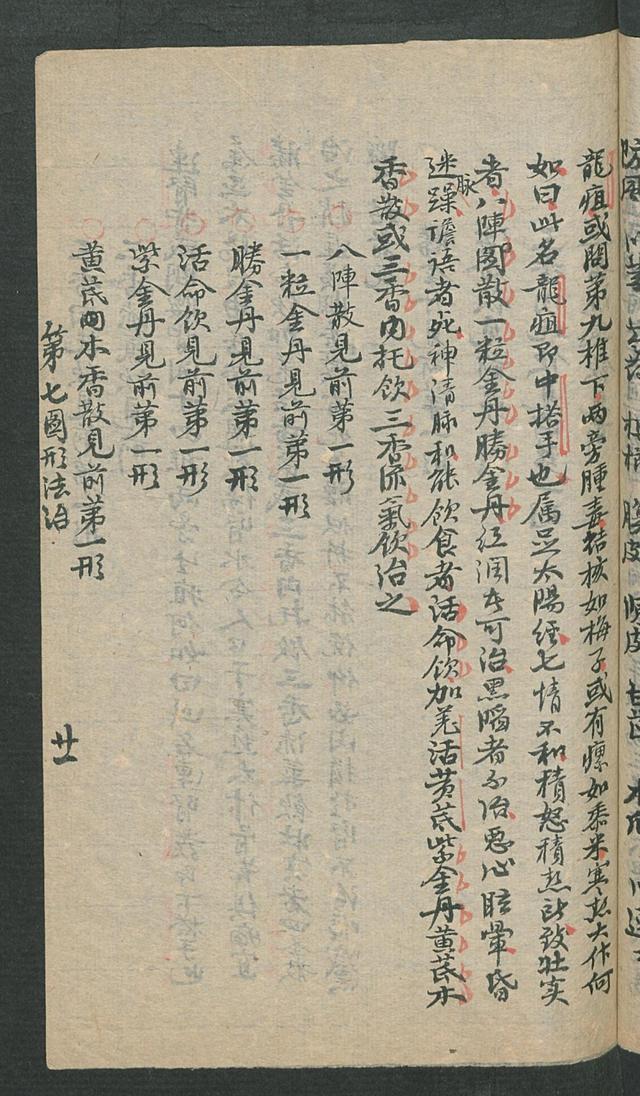 龍疽或問第九椎下兩旁腫毒結核如梅子或有瘰如黍米寒熱大作何
如曰此名龍疽即中搭手也属足太陽經七情不和積怒積熱所致壯实
者八陣图散一粒金丹勝金丹红润者可治黑陷者不治恶心眩暈昏
迷躁脉譫语者死神清脉和能飲食者活命飲加羌活黄茋紫金丹黄茋木
香散或三香内托飲三香流氣飲治之
八陣散見前第一形
一粒金丹見前第一形
勝金丹見前第一形
活命飲見前第一形
紫金丹見前第一形
黄茋内木香散見前第一形
第七圖形法治
廿一